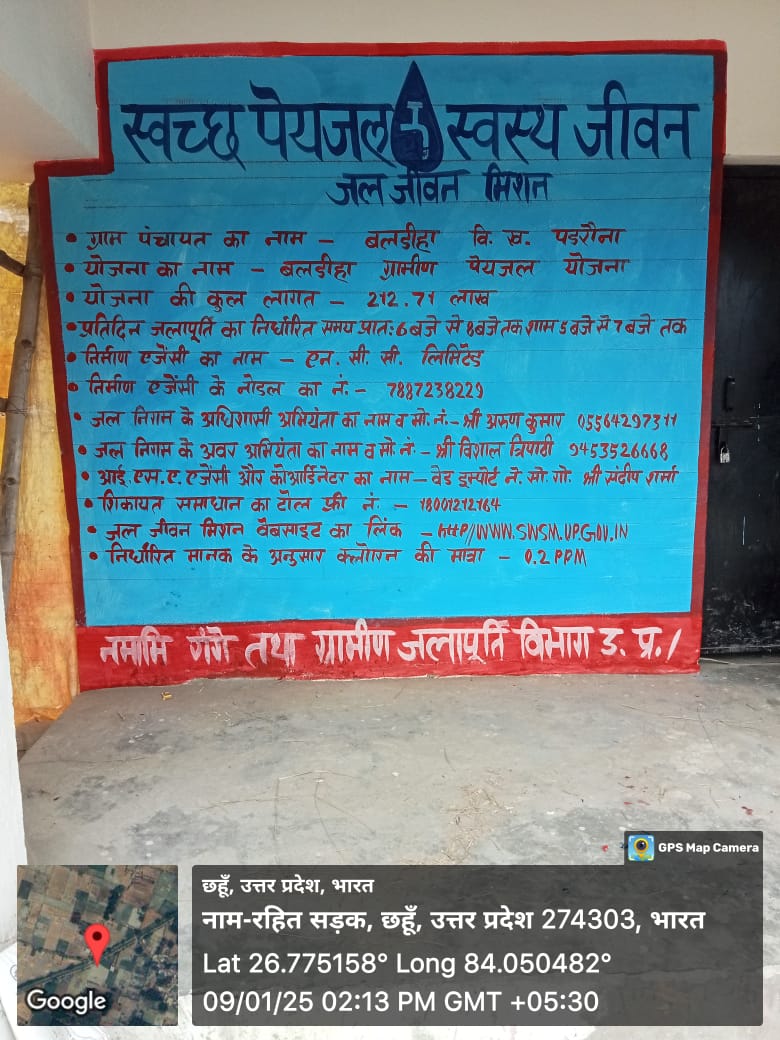 स्वच्छ पेयजल स्वस्थ जीवन
जल जीवन मिशन
• ग्राम पंचायत का नाम – बलडीहा वि. ख. पडरौना
• योजना का नाम – बलडीहा ग्रामीण पेयजल योजना
• योजना की कुल लागत – 212.71 लाख
• प्रतिदिन जलापूर्ति का निर्धारित समय प्रात: 6 बजे से 8 बजे तक शाम 5 बजे से 7 बजे तक
• निर्माण एजेंसी का नाम – एन. सी. सी. लिमिटेड
• निर्माण एजेंसी के नोडल का नं. – 7887238229
• जल निगम के अधिशासी अभियंता का नाम व मो. नं. – श्री अरुण कुमार 05564297311
• जल निगम के अवर अभियंता का नाम व मो. नं. – श्री विशाल त्रिपाठी 9453526668
• आई. एस. ए. एजेंसी और कोआर्डिनेटर का नाम – वेड ने. सो. गो. श्री संदीप शर्मा
• शिकायत समाधान का टोल फ्री नं. – 18001212164
• जल जीवन मिशन वैबसाइट का लिंक – http//WWW.SWSM.UP.GOV.IN
• निर्धारित मानक के अनुसार क्लोरीन की मात्रा – 0.2 PPM
नमामि गंगे तथा ग्रामीण जलापूर्ति विभाग उ. प्र. /
GPS Map Camera
छहूँ, उत्तर प्रदेश, भारत
नाम-रहित सड़क, छहूँ, उत्तर प्रदेश 274303, भारत
Lat 26.775158° Long 84.050482°
09/01/25 02:13 PM GMT +05:30
Google